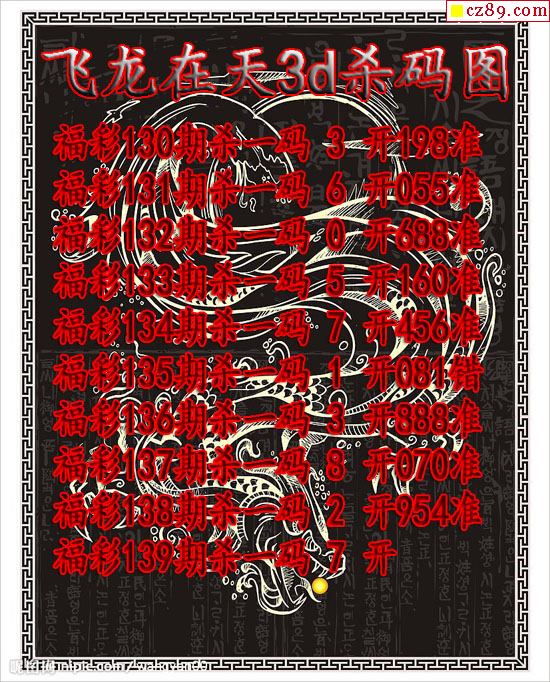 cz89.com
飞龙在天3d杀码图
福彩130期杀一码 3 开498准
福彩131期杀一码 6 开055准
福彩132期杀一码 0 开638准
福彩133期杀一码 5 开160准
福彩134期杀一码 7 开456准
福彩135期杀一码 1 开081错
福彩136期杀一码 3 开888准
福彩137期杀一码 8 开070准
福彩138期杀一码 2 开954准
福彩139期杀一码 7 开